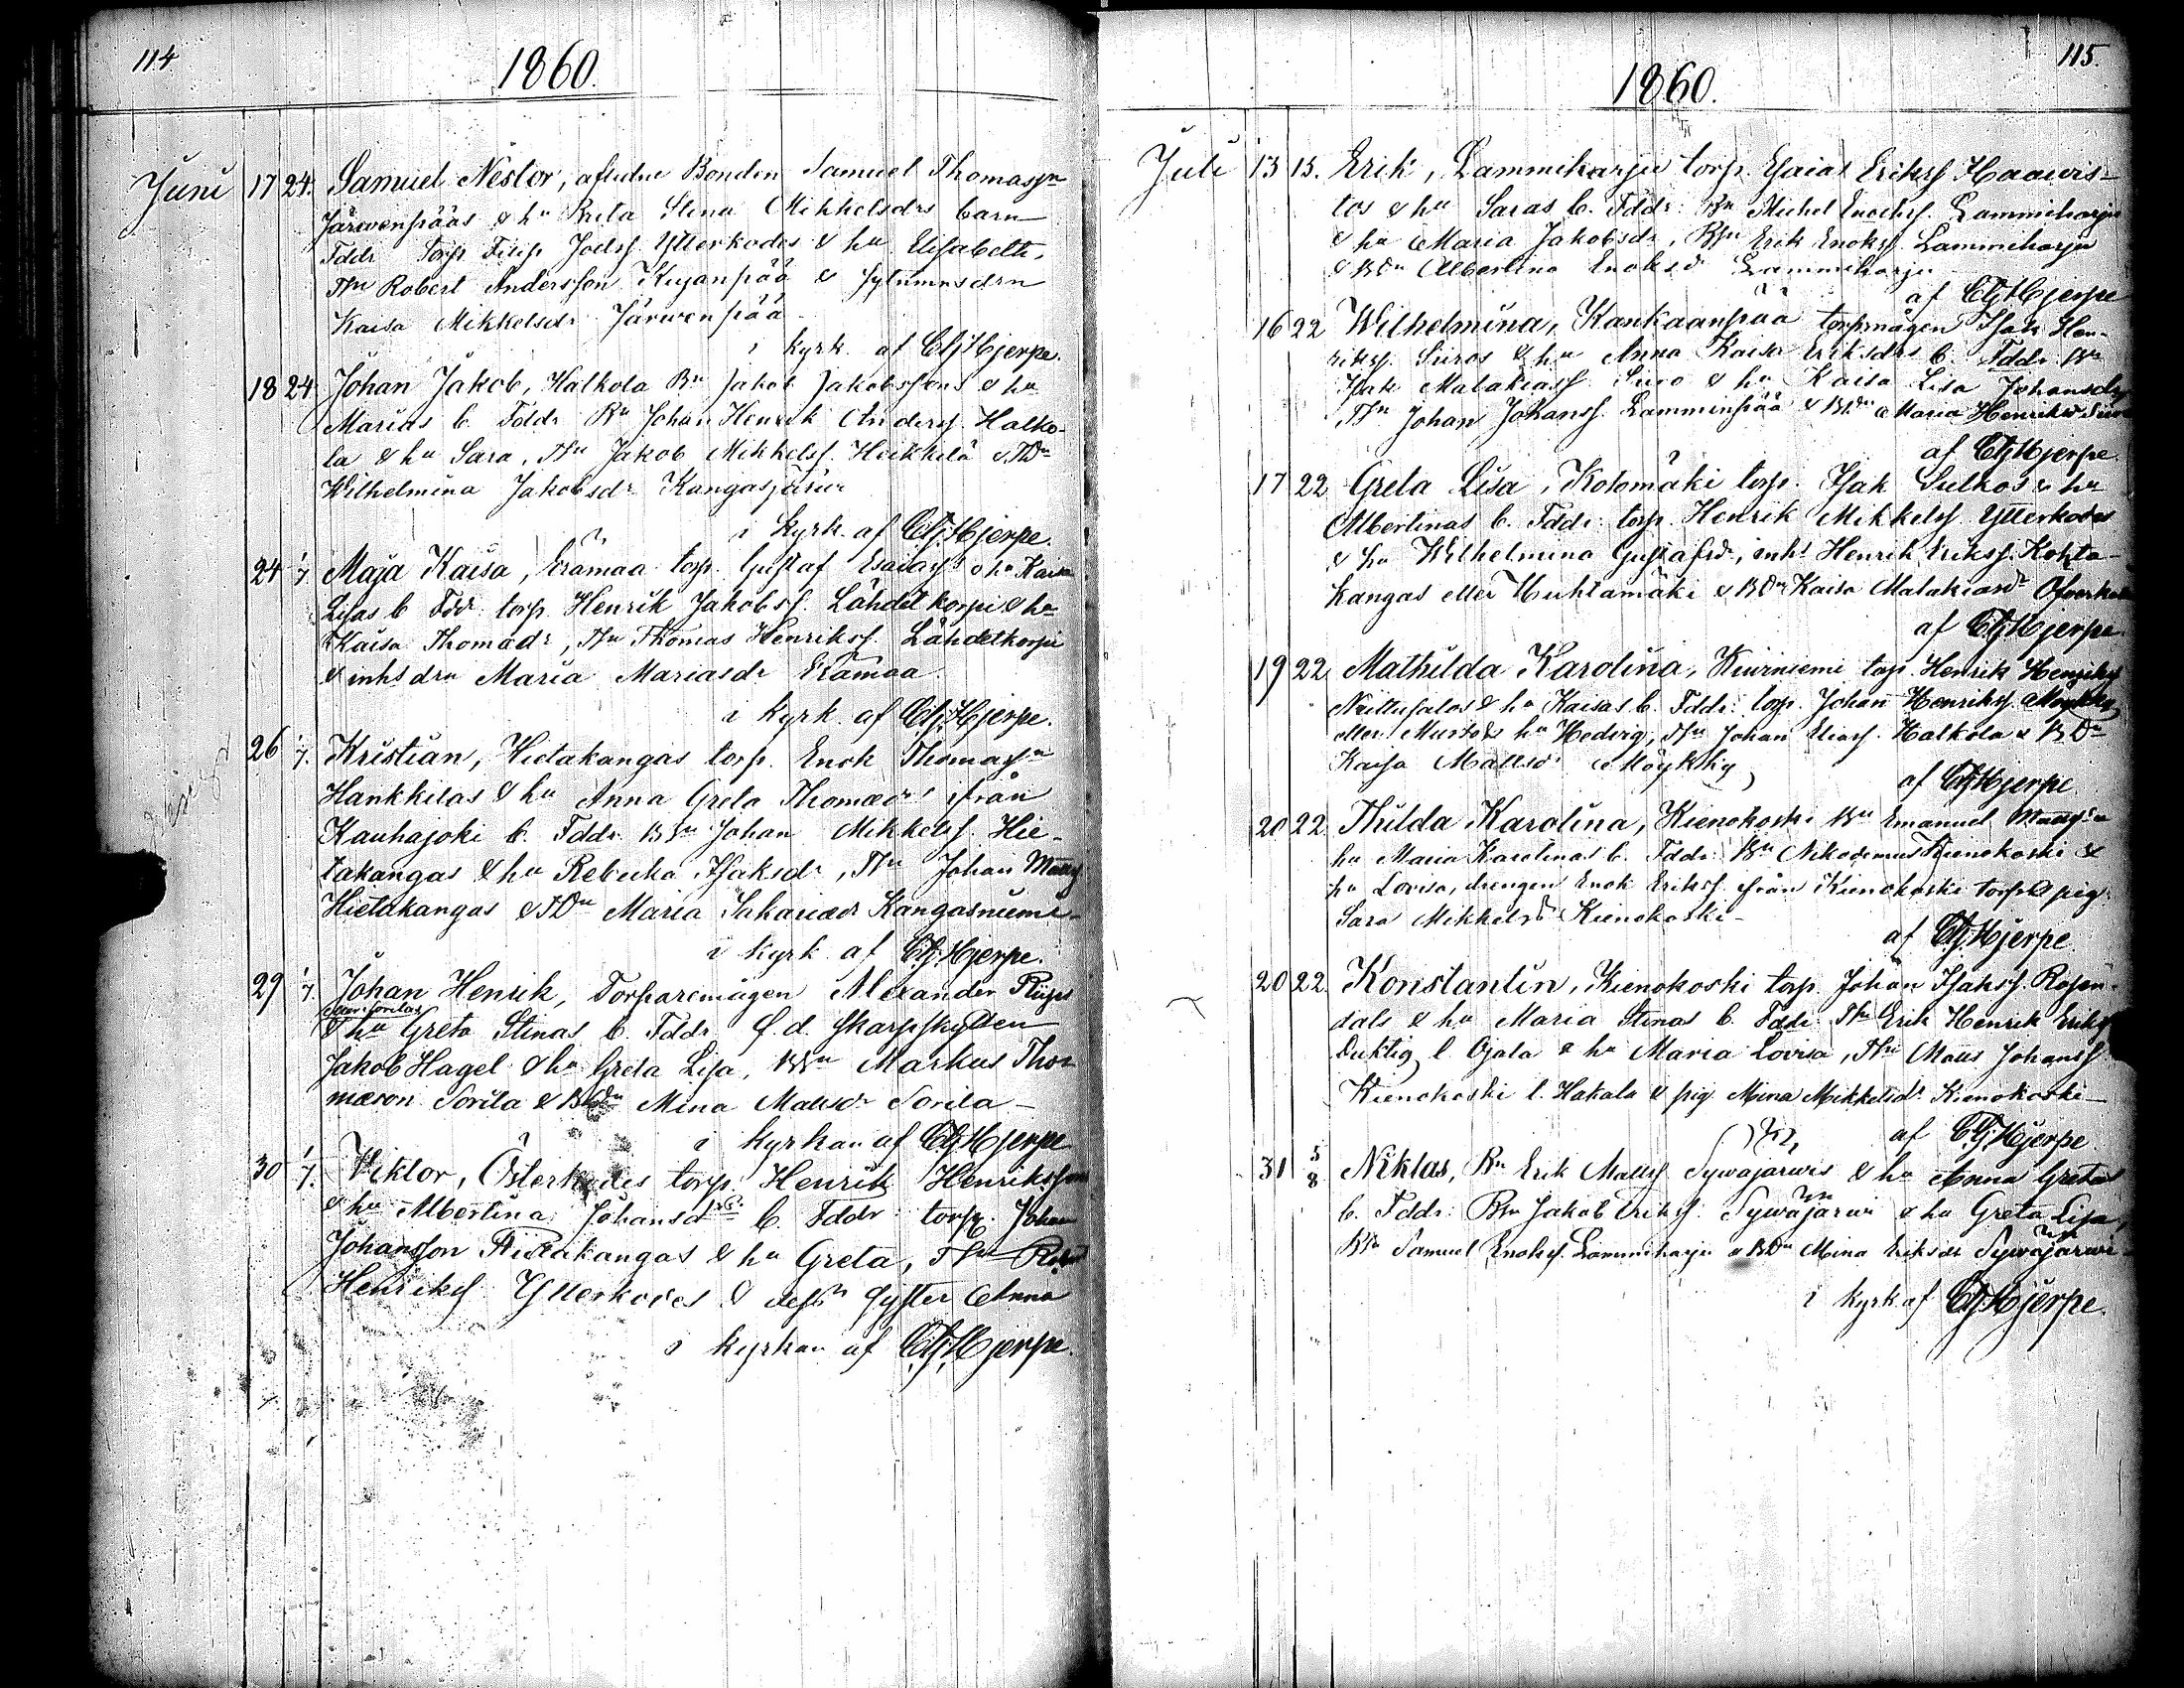 114
1860.
Juni 17 24. Samuel Nestor, aflidne Bonden Samuel Thomass:n
Järwenpääs & h:u Greta Stina Mikkelsdrs barn
Fddr Torp. Filip Joelss. Ytterkodes & h:u Elisabeth,
Robert Andersson Kujanpää &
Kaisa Mikkelsdr Järwenpää
i kyrk. af CGHjerpe.
18 24 Johan Jakob, Halkola Bn Jakob Jakobssons & h:u
Marias b. Fddr Bn Johan Henrik Anderss. Halko-
la & h:u Sara, Jakob Mikkelss. Heikkilä &
Wilhelmina Jakobsdr Kangasjärwi
i kyrk. af CGHjerpe.
24 1/7 Maja Kaisa, Erämaa torp. Gustaf Esaiass. & h:u Kaisa
Lisas b Fddr torp. Henrik Jakobss. Lähdetkorpi & h:u
Kaisa Thomædr, Thomas Henrikss. Lähdetkorpi
& inhs drn Maria Mariasdr Erämaa.
i kyrk. af CGHjerpe.
26 1/7. Kristian, Hietakangas torp. Enok Thomass:n
Hankkilas & h:u Anna Greta Thomædr ifrån
Kauhajoki b. Fddr. Johan Mikkelss. Hie-
takangas & h:u Rebecka Isaksdr, Johan Matts
Hietakangas & Maria Sakariædr Kangasniemi
i kyrk. af CGHjerpe.
29 1/7. Johan Henrik, Torparemågen Alexander
Sorilas
& h:u Greta Stinas b. Fddr f.d. skarpskytten
Jakob Hagel & h:u Greta Lisa, Markus Tho-
mæson Sorila & Mina Mattsdr Sorila
i kyrkan af CGHjerpe
30 1/7. Viktor, Österkodes torp. Henrik Henriksson
& h:u Albertina Johansd b. Fddr torp. Johan
Johansson Hietakangas & h:u Greta,
Henrikss Ytterkodes & dess syster Anna
i kyrkan af CGHjerpe.
115.
1860.
Juli 13 15. Erik, Lammiharju torp. Esaias Erikss Haawis-
tos & h:u Saras b. Fddr. Bn Michel Enokss. Lammiharju
& h:u Maria Jakobsdr, Erik Enokss. Lammiharju
& Albertina Enoksd Lammiharju
af CGHjerpe
16 22 Wilhelmina, Kankaanpää torpmågen Isak Hen-
rikss. Siiros & h:u Anna Kaisa Eriksdrs b. Fddr. Bn
Isak Malakiass Siiro & h:u Kaisa Lisa Johansdr
Johan Johanss. Lamminpää & Maria Henriksd
af CGHjerpe.
17 22 Greta Lisa, Kotomäki torp. Isak Sulkos & h:u
Albertinas b. Fddr. torp. Henrik Mikkelss. Ytterkodes
& h:u Wilhelmina Gustafsd, inhs Henrik Erikss. Kohta-
kangas eller Huhtamäki & Kaisa Malakiasd
af CGHjerpe.
19 22 Mathilda Karolina, Kiwiniemi torp Henrik Henrikss
Niittusalos & h:u Kaisas b. Fddr. torp. Johan Henrikss. Möykky
eller Musto & h:u Hedvig, Johan Eliass. Halkola &
Kaisa Mattsdr Möykky
af CGHjerpe.
20 22 Thilda Karolina, Kienokoski Emanuel Mattss:n
h:u Maria Karolinas b. Fddr. Nikodemus Kienokoski &
h:u Lovisa, drengen Enok Erikss. ifrån Kienokoski torp & pig.
Sara Mikkelsd Kienokoski
af CGHjerpe.
20 22. Konstantin, Kienokoski torp. Johan Isakss. Rosen-
dals & h:u Maria Stinas b. Fddr. Erik Henrik Erikss
Duktig l. Ojala & h:u Maria Lovisa, Matts Johanss
Kienokoski l. Hakala & pig. Mina Mikkelsdr Kienokoski
af CGHjerpe.
31 5/8 Niklas, Bn Erik Mattss Sywäjärwis & h:u Anna Gretas
b. Fddr. Jakob Erikss. Sywäjärwi & h:u Greta Lisa,
Samuel Enokss. Lammiharju & Mina Eriksdr Sywäjärwi
i kyrk af CGHjerpe.